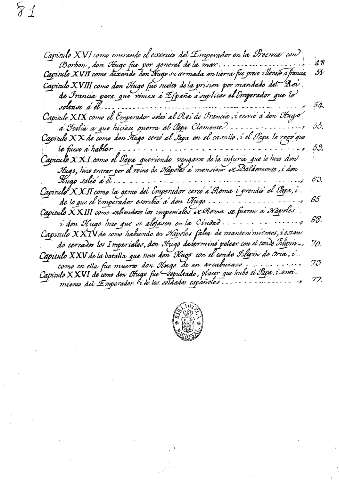 81
Capitulo XVI como uniendo el exercito del Emperador en la Proenza con
Borbon, don Hugo fue por general de la mar 48.
Capitulo XVII como dexando don Hugo su armada en tierra fue preso i llevado a francia 51.
Capitulo XVIII como don Hugo fue suelto de la prision por mandado del Rei
de Francia para que viniese á España á suplicar el Emperador que lo
soltase á él 54.
Capitulo XIX como el Emperador soltó al Rei de Francia, i envió á don Hugo
a Italia a que hiciese guerra al Papa Clemente 55.
Capitulo XX de como don Hugo cercó al Papa en el castillo, i el Papa le rogó que
le fuese á hablar 59.
Capitulo XXI como el Papa queriendo vengarse de la injuria que le hizo don
Hugo, hizo entrar por el reino de Napoles á monsieur de Valdemonte, i don
Hugo salió á él 63.
Capitulo XXII como la gente del Emperador cercó á Roma i prendió al Papa, i
de lo que el Emperador escribió á don Hugo 65
Capitulo XXIII como saliendose los imperiales de Roma se fueron á Napoles
i don Hugo hizo que se alojasen en la Ciudad 68.
Capitulo XXIV de como habiendo en Napoles falta de mantenimientos, i estan-
do cercados los Imperiales, don Hugo determinó pelear con el conde Filipin 70.
Capitulo XXV de la batalla que uvo don Hugo con el conde Filipin de Oria, i
como en ella fue muerto don Hugo de un arcabuzazo 73
Capitulo XXVI de como don Hugo fue sepultado, placer que hubo el Papa, i ene-
migos del Emperador i de los soldados españoles 77.